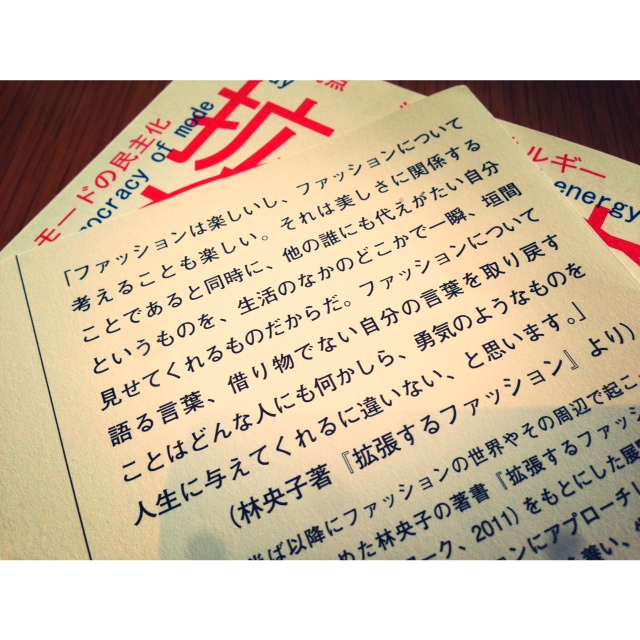 モードの民主化
ocracy of mode
拡
ルギー
energy
「ファッションは楽しいし、ファッションについて
考えることも楽しい。それは美しさに関係する
ことであると同時に、他の誰にも代えがたい自分
というものを、生活のなかのどこかで一瞬、垣間
見せてくれるものだからだ。ファッションについて
語る言葉、借り物でない自分の言葉を取り戻す
ことはどんな人にも何かしら、勇気のようなものを
人生に与えてくれるに違いない、と思います。」
（林央子著『拡張するファッション』より）
ば以降にファッションの世界やその周辺で起こ
めた林央子の著書『拡張するファッシ
ーク、2011）をもとにした展
ンにアプローチし